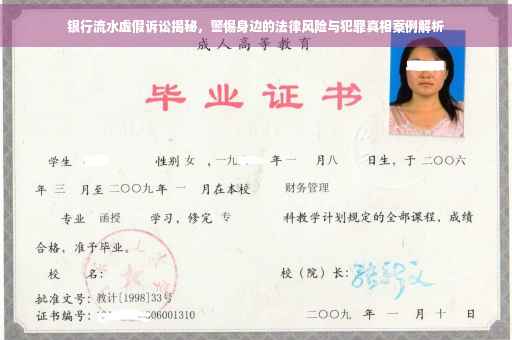 银行流水虚假诉讼揭秘，警惕身边的法律风险与犯罪真相案例解析
成人高等教育
毕业证书
学生 性别 女 ，一九 年 一 月八 日生，于 二〇〇六
年 三 月至 二〇〇九 年 一 月在本校 财务管理
专业 函授 学习，修完 专 科教学计划规定的全部课程，成绩
合格，准予毕业。
校 名： 校（院）长：
批准文号：教计[1998]33号
证书编号： 06001310 二〇〇九 年 一 月 十 日